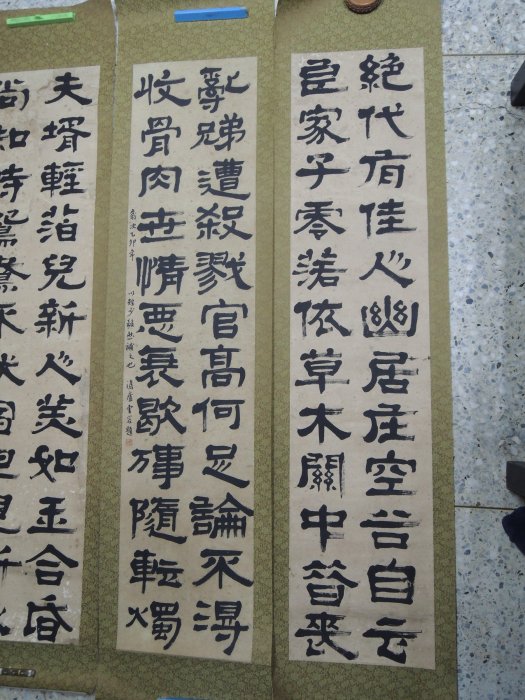 絕代有佳人幽居在空谷自云
良家子零落依草木關中昔喪
亂弟遭殺戮官高何足論不得
收骨肉世情惡衰歇万事隨転燭
乙卯年 補之也
夫婿輕薄兒新人美如玉合昏
尚知時鴛鴦不獨宿但見新人